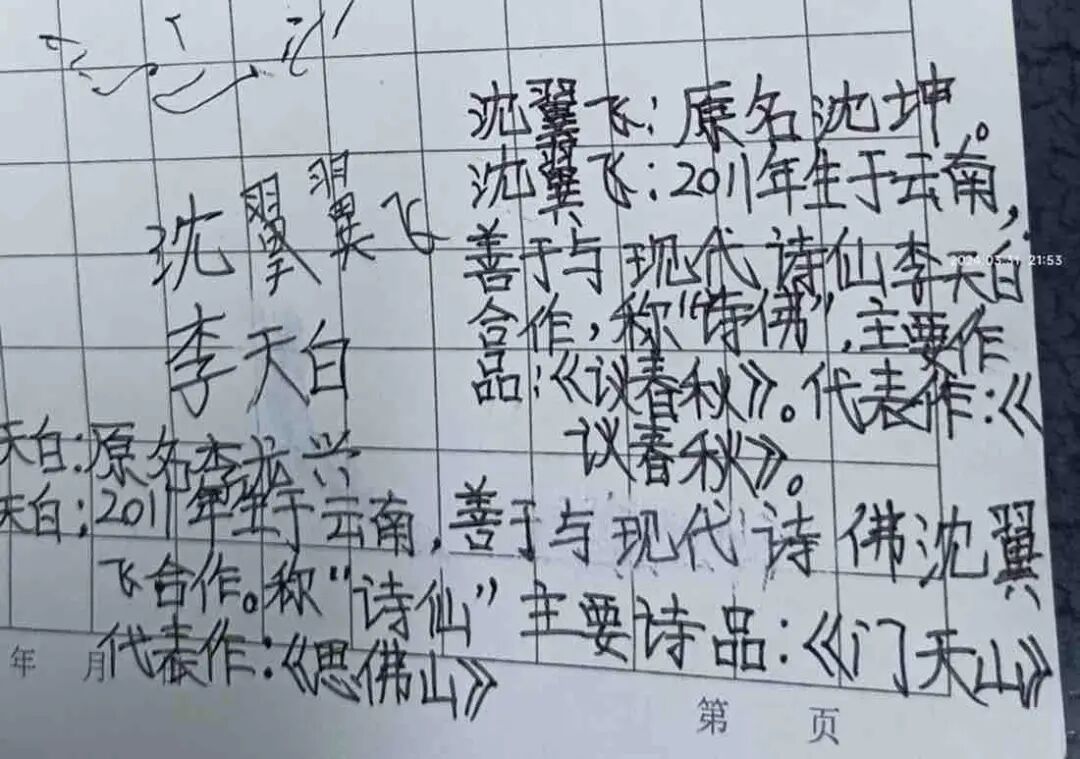 沈翼飞：原名沈坤。
沈翼飞：2011年生于云南，
善于与现代诗仙李天白
合作，称“诗佛”，主要作
品：《议春秋》。代表作：《
议春秋》。
沈翼飞
李天白
天白：原名李龙兴
天白：2011年生于云南，善于与现代诗佛沈翼
飞合作。称“诗仙”主要诗品：《门天山》
代表作：《思佛山》
年 月
第 页
2024.03.31 21:53